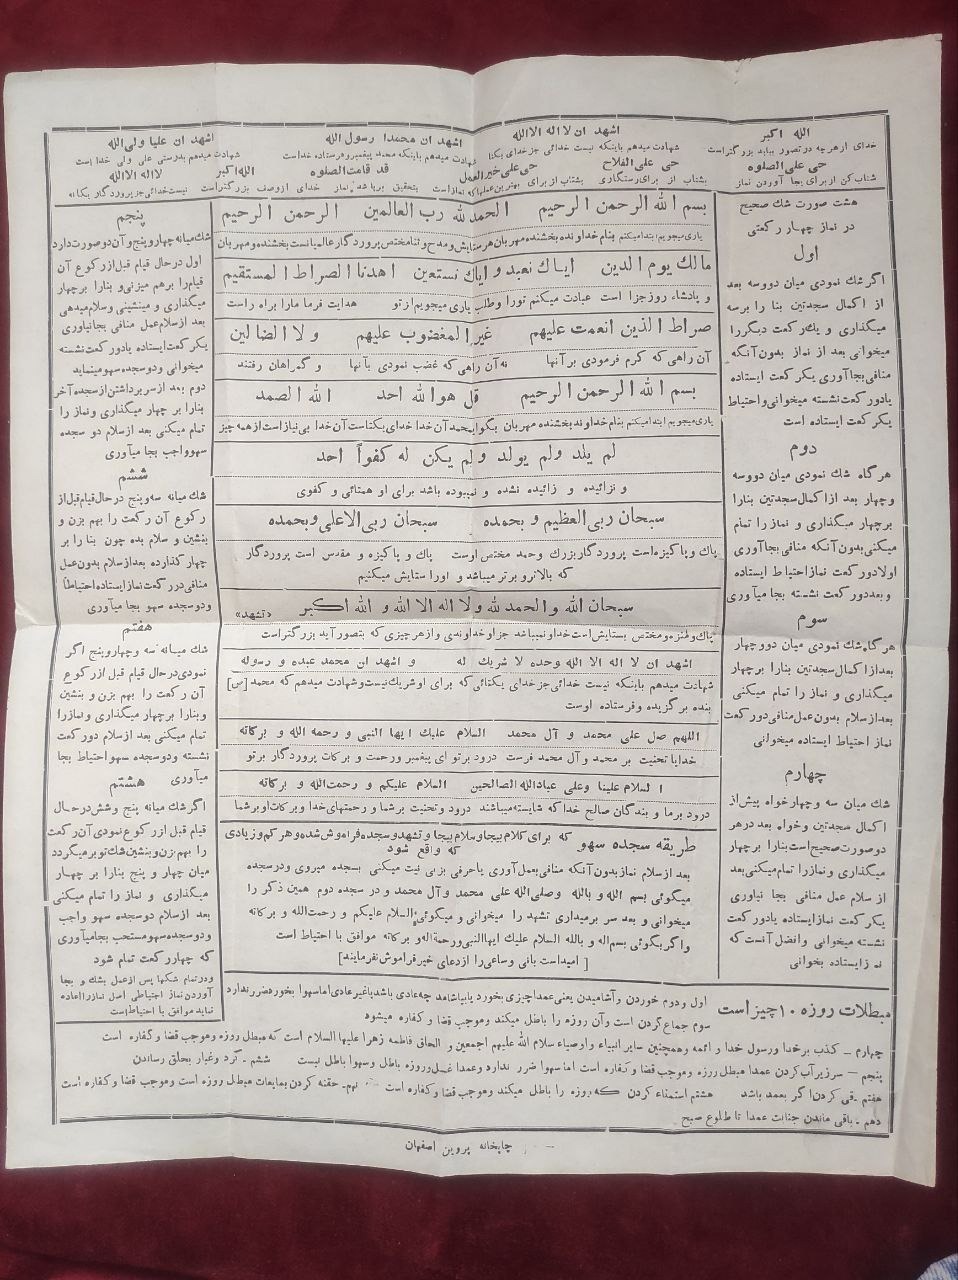 الله اکبر
اشهد ان لا اله الا الله
اشهد ان محمدا رسول الله
اشهد ان علیا ولی الله
خدای از هر چه در تصور بیاید بزرگتر است
شهادت میدهم باینکه نیست خدائی جز خدای یکتا
شهادت میدهم باینکه محمد پیغمبر و فرستاده خداست
شهادت میدهم بدرستی علی ولی خدا است
حی علی الصلوه
حی علی الفلاح
حی علی خیر العمل
قد قامت الصلوه
الله اکبر
لا اله الا الله
شتاب کن از برای بجا آوردن نماز
بشتاب از برای رستگاری
بشتاب از برای بهترین عملها که نماز است
بتحقیق برپا شد نماز
خدای از وصف بزرگتر است
نیست خدائی جز پروردگار یگانه
هشت صورت شك صحیح
در نماز چهار رکعتی
اول
اگر شك نمودی میان دو و سه بعد
از اکمال سجدتین بنا را بر سه
میگذاری و یك رکعت دیگر را
میخوانی بعد از نماز بدون آنکه
منافی بجا آوری یکرکعت ایستاده
یا دو رکعت نشسته میخوانی و احتیاط
یکرکعت ایستاده است
دوم
هر گاه شك نمودی میان دو و سه
و چهار بعد از اکمال سجدتین بنا را
بر چهار میگذاری و نماز را تمام
میکنی بدون آنکه منافی بجا آوری
اولا دو رکعت نماز احتیاط ایستاده
و بعد دو رکعت نشسته بجا میآوری
سوم
هر گاه شك نمودی میان دو و چهار
بعد از اکمال سجدتین بنا را بر چهار
میگذاری و نماز را تمام میکنی
بعد از سلام بدون عمل منافی دو رکعت
نماز احتیاط ایستاده میخوانی
چهارم
شك میان سه و چهار خواه پیش از
اکمال سجدتین و خواه بعد در هر
دو صورت صحیح است بنا را بر چهار
میگذاری و نماز را تمام میکنی بعد
از سلام عمل منافی بجا نیاوری
یکرکعت نماز ایستاده یا دو رکعت
نشسته میخوانی و افضل آنست که
نماز ایستاده بخوانی
بسم الله الرحمن الرحیم الحمد لله رب العالمین الرحمن الرحیم
یاری میجویم ابتدا میکنم بنام خداوند بخشنده مهربان هر ستایش و مدح و ثنا مختص پروردگار عالمیانست بخشنده و مهربان
مالك یوم الدین ایاك نعبد و ایاك نستعین اهدنا الصراط المستقیم
و پادشاه روز جزا است عبادت میکنم تو را و طلب یاری میجویم از تو هدایت فرما ما را براه راست
صراط الذین انعمت علیهم غیر المغضوب علیهم و لا الضالین
آن راهی که کرم فرمودی بر آنها نه آن راهی که غضب نمودی بآنها و گمراهان رفتند
بسم الله الرحمن الرحیم قل هو الله احد الله الصمد
یاری میجویم ابتدا میکنم بنام خداوند بخشنده مهربان بگو ای محمد آن خدا خدای یکتاست آن خدا بی نیاز است از همه چیز
لم یلد و لم یولد و لم یکن له کفواً احد
و نزائیده و زائیده نشده و نمیبوده باشد برای او همتائی و کفوی
سبحان ربی العظیم و بحمده سبحان ربی الاعلی و بحمده
پاك و پاکیزه است پروردگار بزرك و حمد مختص اوست پاك و پاکیزه و مقدس است پروردگار
که بالاتر و برتر میباشد و او را ستایش میکنیم
سبحان الله و الحمد لله و لا اله الا الله و الله اکبر «تشهد»
پاك و منزه و مختص بستایش است خدا و نمیباشد جز او خداوندی و از هر چیزی که بتصور آید بزرگتر است
اشهد ان لا اله الا الله وحده لا شریك له و اشهد ان محمد عبده و رسوله
شهادت میدهم باینکه نیست خدائی جز خدای یکتائی که برای او شریك نیست و شهادت میدهم که محمد [ص]
بنده برگزیده و فرستاده اوست
اللهم صل علی محمد و آل محمد السلام علیك ایها النبی و رحمه الله و برکاته
خدایا تحنیت بر محمد و آل محمد فرست درود بر تو ای پیغمبر و رحمت و برکات پروردگار بر تو
السلام علینا و علی عباد الله الصالحین السلام علیکم و رحمت الله و برکاته
درود بر ما و بندگان صالح خدا که شایسته میباشند درود و تحنیت بر شما و رحمتهای خدا و برکات او بر شما
طریقه سجده سهو که برای کلام بیجا و سلام بیجا و تشهد و سجده فراموش شده و هر کم و زیادی
که واقع شود
بعد از سلام نماز بدون آنکه منافی بعمل آوری یا حرفی بزنی نیت میکنی بسجده میروی و در سجده
میگوئی بسم الله و بالله وصلی الله علی محمد و آل محمد و در سجده دوم همین ذکر را
میخوانی و بعد سر برمیداری تشهد را میخوانی و میگوئی السلام علیکم و رحمت الله و برکاته
و اگر بگوئی بسم اله و بالله السلام علیك ایها النبی و رحمة اله و برکاته موافق با احتیاط است
[ امید است بانی و ساعی را از دعای خیر فراموش نفرمایند ]
پنجم
شك میانه چهار و پنج و آن دو صورت دارد
اول در حال قیام قبل از رکوع آن
قیام را برهم میزنی و بنا را بر چهار
میگذاری و مینشینی و سلام میدهی
بعد از سلام عمل منافی بجا نیاوری
یکرکعت ایستاده یا دو رکعت نشسته
میخوانی و دو سجده سهو مینماید
دوم بعد از سر برداشتن از سجده آخر
بنا را بر چهار میگذاری و نماز را
تمام میکنی بعد از سلام دو سجده
سهو واجب بجا میآوری
ششم
شك میانه سه و پنج در حال قیام قبل از
رکوع آن رکعت را بهم بزن و
بنشین و سلام بده چون بنا را بر
چهار گذارده بعد از سلام بدون عمل
منافی دو رکعت نماز ایستاده احتیاطاً
و دو سجده سهو بجا میآوری
هفتم
شك میانه سه و چهار و پنج اگر
نمودی در حال قیام قبل از رکوع
آن رکعت را بهم بزن و بنشین
و بنا را بر چهار میگذاری و نماز را
تمام میکنی بعد از سلام دو رکعت
نشسته و دو سجده سهو احتیاط بجا
میآوری
هشتم
اگر شك میانه پنج و شش در حال
قیام قبل از رکوع نمودی آن رکعت
را بهم بزن و بنشین شك تو بر میگردد
میان چهار و پنج بنا را بر چهار
میگذاری و نماز را تمام میکنی
بعد از سلام دو سجده سهو واجب
و دو سجده سهو مستحب بجا میآوری
که چهار رکعت تمام شود
و در تمام شکها پس از عمل بشك و بجا
آوردن نماز احتیاطی اصل نماز را اعاده
نماید موافق با احتیاط است
مبطلات روزه ۱۰ چیز است
اول و دوم خوردن و آشامیدن یعنی عمدا چیزی بخورد یا بیاشامد چه عادی باشد یا غیر عادی اما سهوا بخورد ضرر ندارد
سوم جماع کردن است و آن روزه را باطل میکند و موجب قضا و کفاره میشود
چهارم ـ کذب بر خدا و رسول خدا و ائمه و همچنین سایر انبیاء و اوصیاء سلام الله علیهم اجمعین و الحاق فاطمه زهرا علیها السلام است که مبطل روزه و موجب قضا و کفاره است
پنجم ـ سر زیر آب کردن عمدا مبطل روزه و موجب قضا و کفاره است اما سهوا ضرر ندارد و عمدا غسل و روزه باطل و سهوا باطل نیست ششم ـ گرد و غبار بحلق رساندن
هفتم ـ قی کردن اگر بعمد باشد هشتم استمناء کردن که روزه را باطل میکند و موجب قضا و کفاره است نهم ـ حقنه کردن بمایعات مبطل روزه است و موجب قضا و کفاره است
دهم ـ باقی ماندن جنابت عمدا تا طلوع صبح
چاپخانه پروین اصفهان